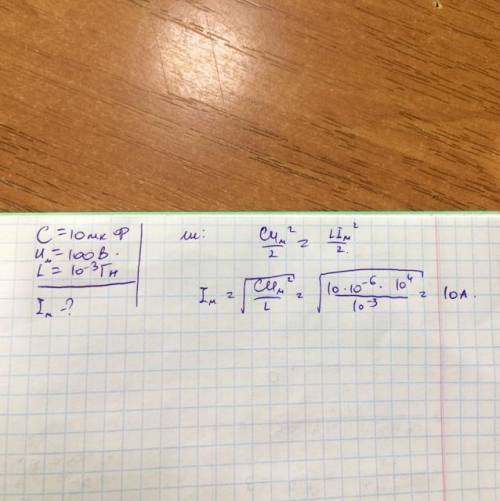 C = 10 мк Ф
Uм = 100 В.
L = 10⁻³ Гн
Iм - ?
CUм²/2 = LIм²/2.
Iм = √(CUм²/L) = √(10·10⁻⁶·10⁴/10⁻³) = 10А.